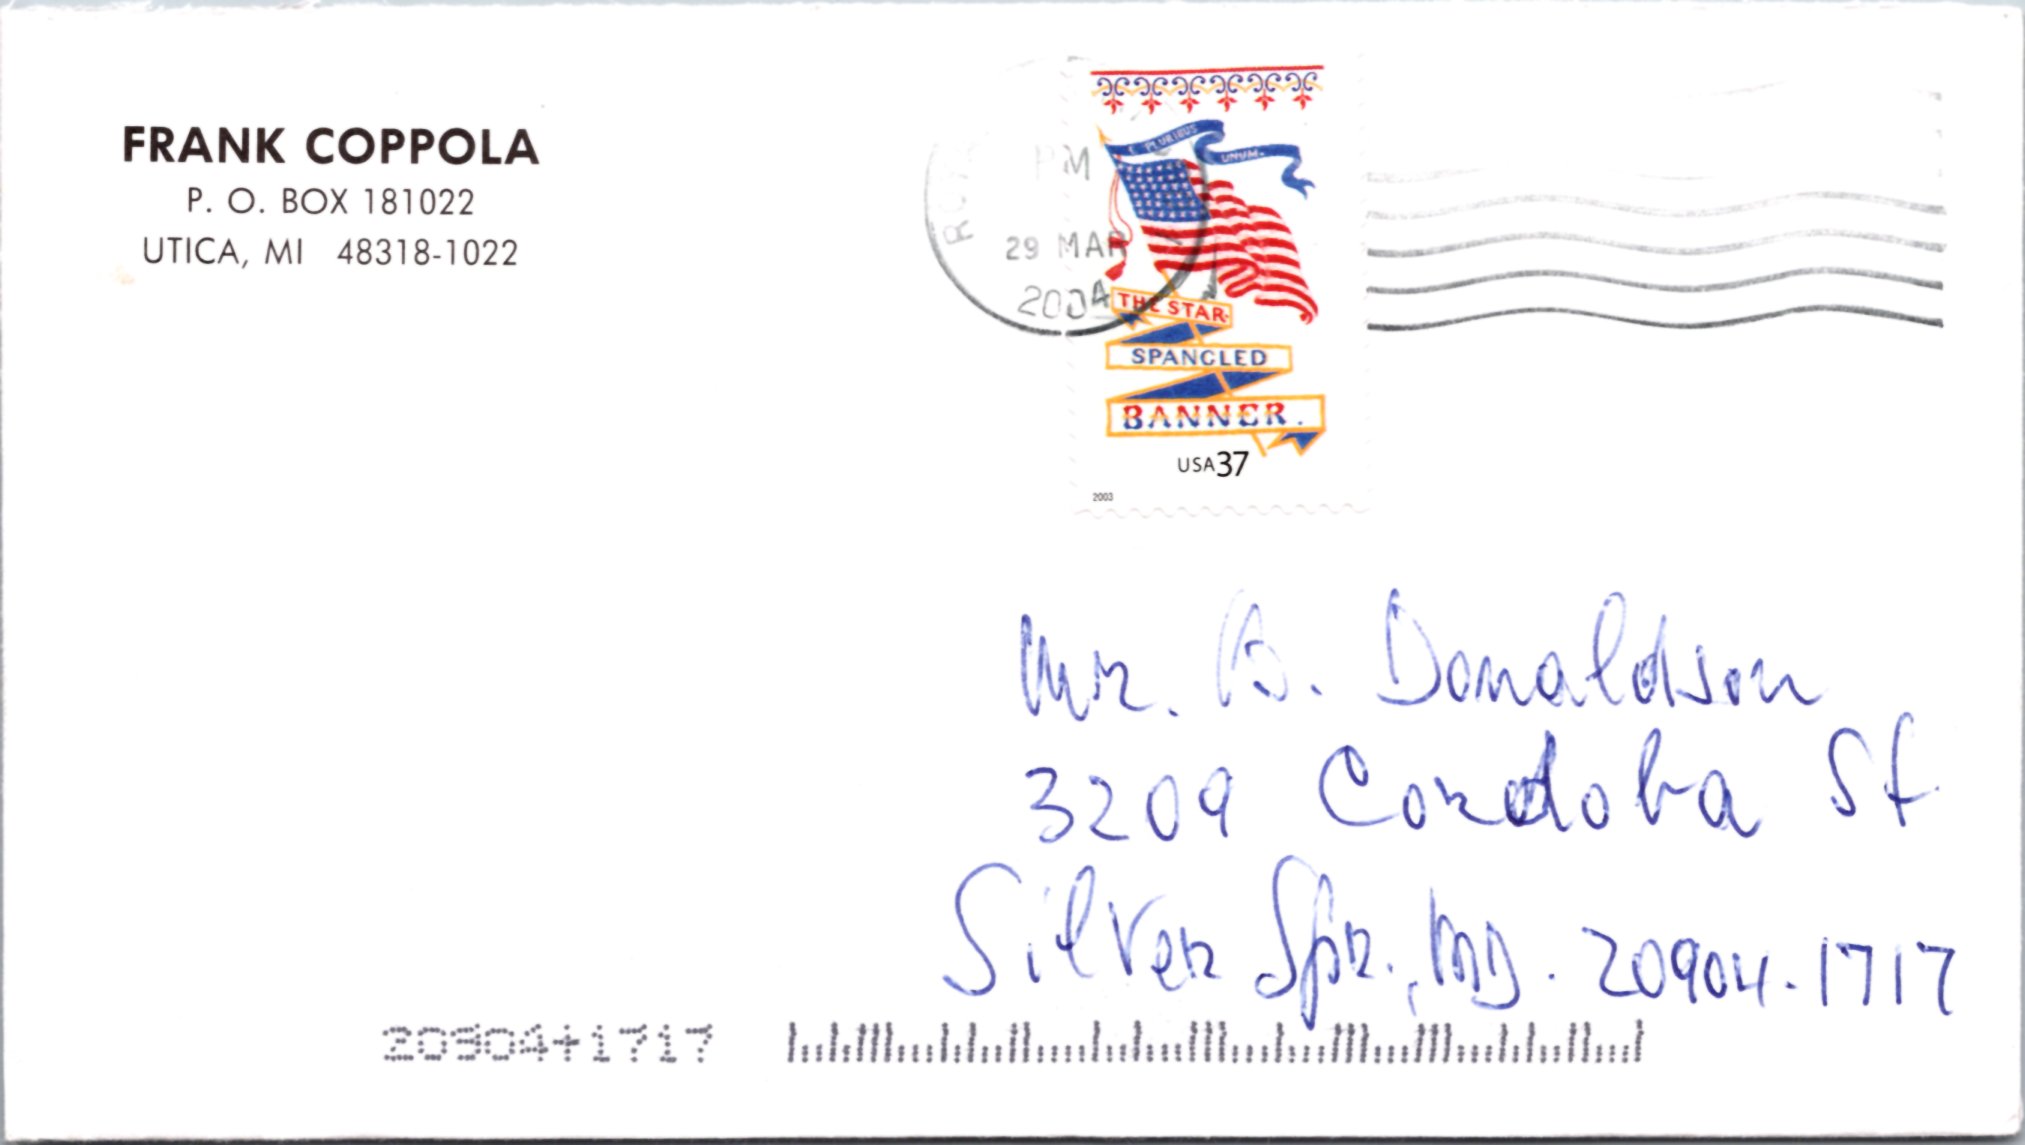 FRANK COPPOLA
P. O. BOX 181022
UTICA, MI 48318-1022
PM
29 MAR
2004
E PLURIBUS
UNUM.
THE STAR-
SPANGLED
BANNER.
USA 37
2003
Mr. B. Donaldson
3209 Cordoba St.
Silver Spr., MD. 20904-1717
20904+1717